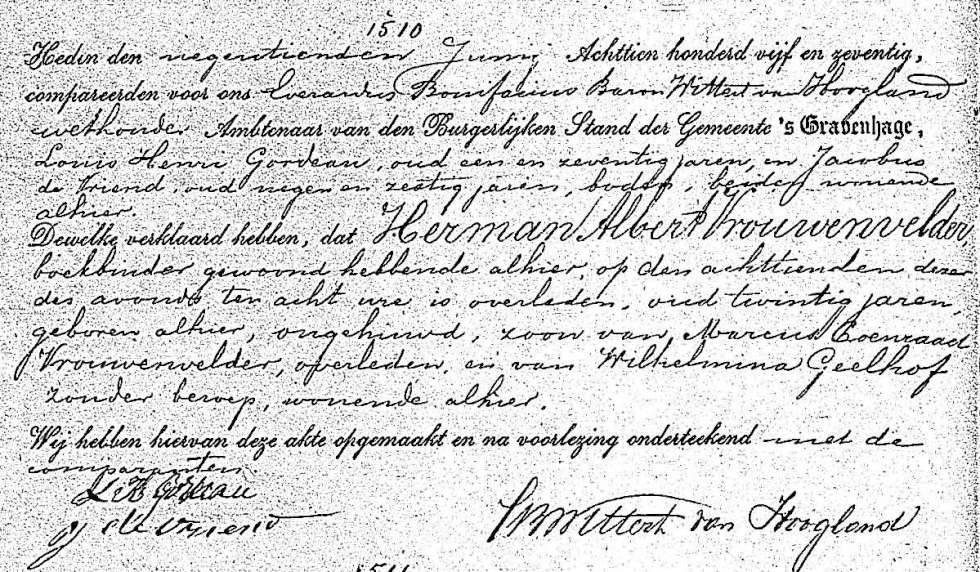 1510
Heden den negentienden Junij Achttien honderd vijf en zeventig,
compareerden voor ons Everardus Bonifacius Baron Wittert van Hoogland
wethouder Ambtenaar van den Burgerlijken Stand der Gemeente 's Gravenhage,
Louis Henri Gordeau, oud een en zeventig jaren, en Jacobus
de Vriend, oud negen en zestig jaren, boden, beiden wonende
alhier.
Dewelke verklaard hebben, dat Herman Albert Vrouwenvelder,
boekbinder gewoond hebbende alhier, op den achttienden dezer
des avonds ten acht ure is overleden, oud twintig jaren
geboren alhier, ongehuwd, zoon van Marcus Coenraad
Vrouwenvelder, overleden, en van Wilhelmina Geelhof
zonder beroep, wonende alhier.
Wij hebben hiervan deze akte opgemaakt en na voorlezing onderteekend met de
comparanten.
L H Gordeau
J de Vriend
Wittert van Hoogland